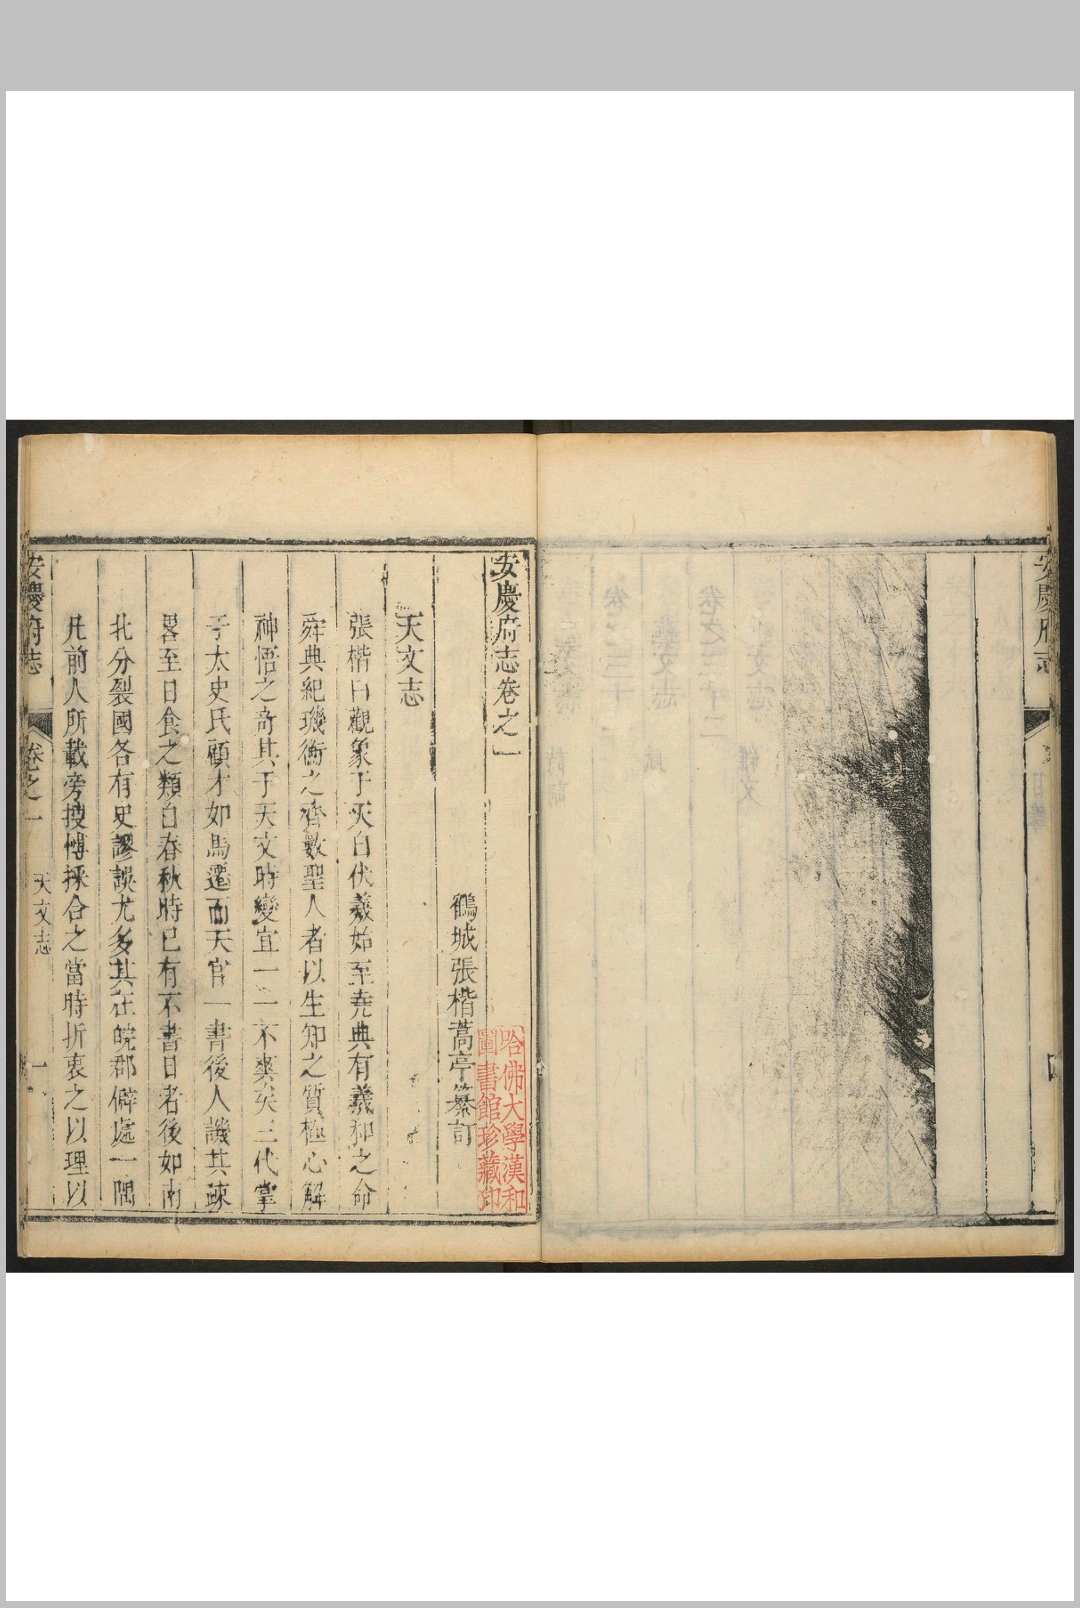 安慶府志
目錄
安慶府志卷之一
鶴城張楷蒿亭纂訂
哈佛大學漢和
圖書館珍藏印
天文志
張楷曰觀象于天自伏羲始至堯典有羲和之命
舜典紀璣衡之齊數聖人者以生知之質極心解
神悟之奇其于天文時變宜一一不爽矣三代掌
于太史氏顧才如馬遷而天官一書後人譏其疎
畧至日食之類自春秋時已有不書日者後如南
北分裂國各有史謬誤尤多其在皖郡僻處一隅
凡前人所載旁搜博採合之當時折衷之以理以
安慶府志
卷之一
天文志
一